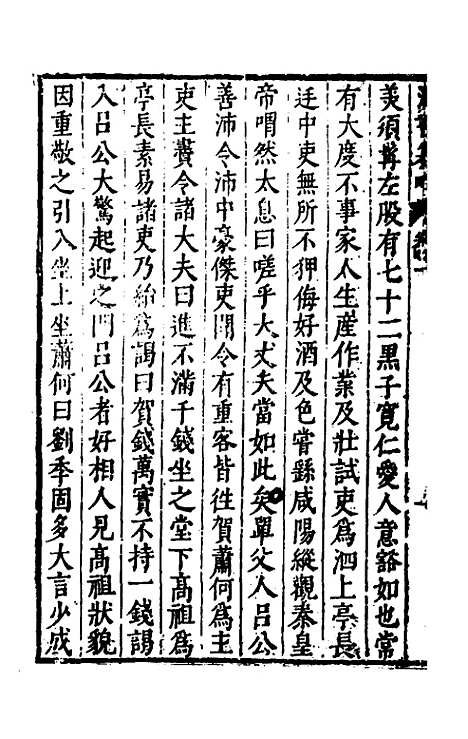 美須髯左股有七十二黒子寛仁愛人意豁如也常
有大度不事家人生産作業及壮試吏為泗上亭長
廷中吏無所不狎侮好酒及色嘗繇咸陽縱觀秦皇
帝喟然太息曰嗟乎大丈夫當如此矣單父人呂公
善沛令沛中豪傑吏聞令有重客皆往賀蕭何為主
吏主賫令諸大夫曰進不滿千錢坐之堂下高祖為
亭長素易諸吏乃紿為謁曰賀錢萬實不持一錢謁
入呂公大驚起迎之門呂公者好相人見高祖狀貌
因重敬之引入坐上坐蕭何曰劉季固多大言少成